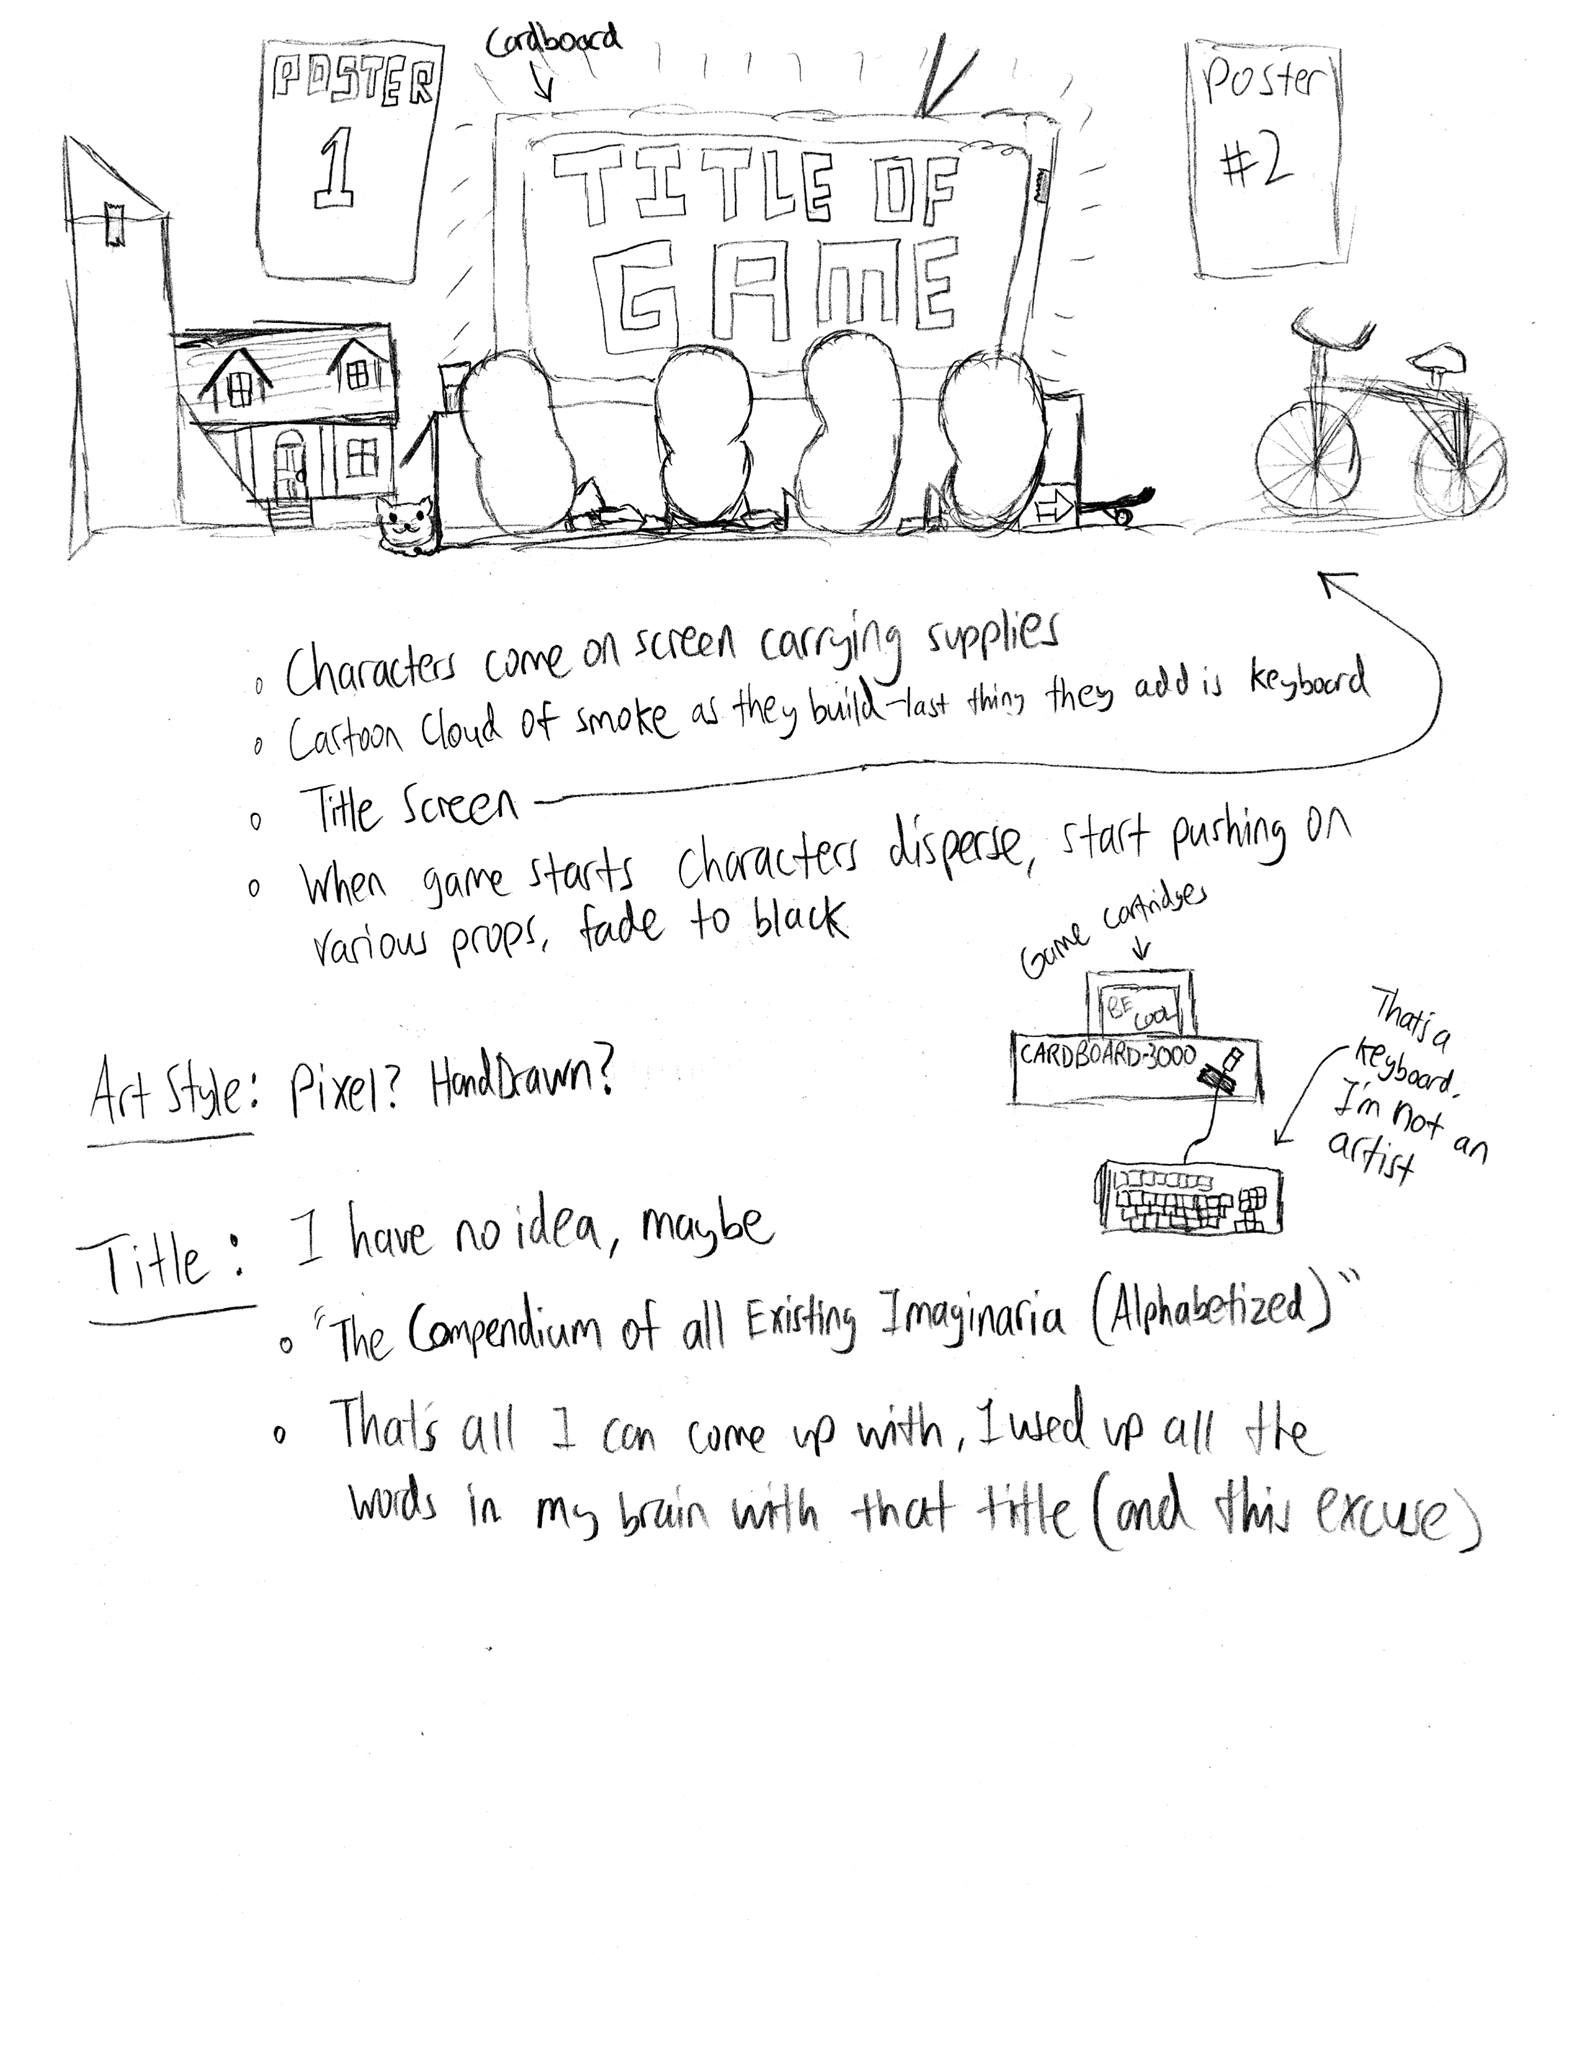 Cardboard
POSTER
1
TITLE OF
GAME
Poster
#2
Characters come on screen carrying supplies
Cartoon Cloud of smoke as they build-last thing they add is keyboard
Title Screen
When game starts characters disperse, start pushing on
various props, fade to black
Game cartridges
BE
COOL
CARDBOARD-3000
That's a
keyboard.
I'm not an
artist
Art Style: Pixel? HandDrawn?
Title: I have no idea, maybe
"The Compendium of all Existing Imaginaria (Alphabetized)"
That's all I can come up with, I used up all the
words in my brain with that title (and this excuse)